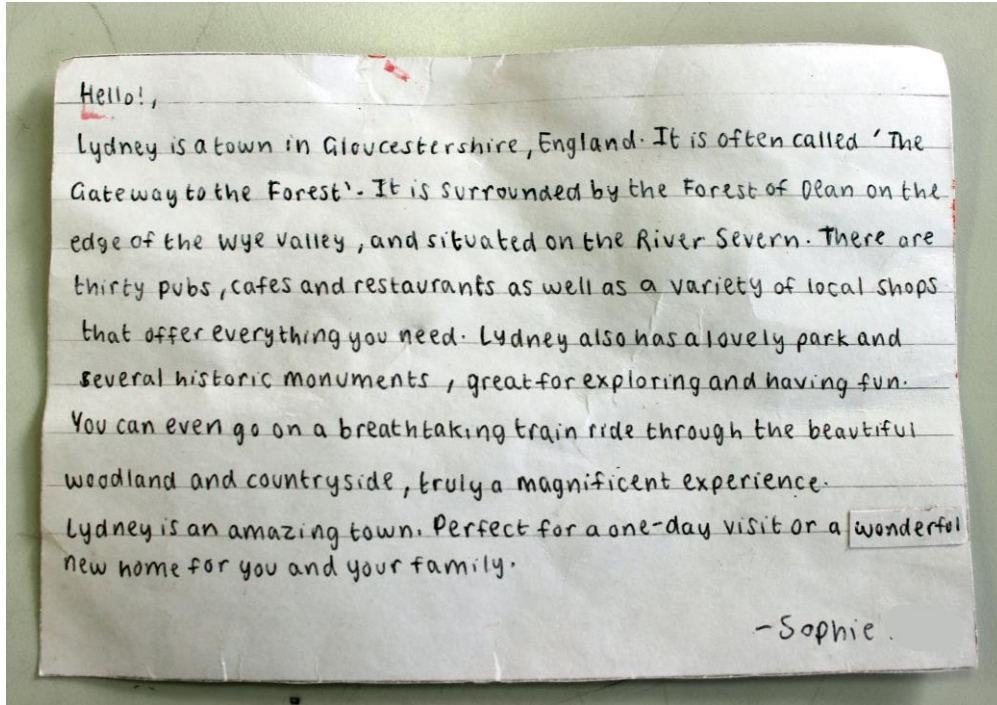 Hello!,
Lydney is a town in Gloucestershire, England. It is often called 'The
Gateway to the Forest'. It is surrounded by the Forest of Dean on the
edge of the Wye Valley, and situated on the River Severn. There are
thirty pubs, cafes and restaurants as well as a variety of local shops
that offer everything you need. Lydney also has a lovely park and
several historic monuments, great for exploring and having fun.
You can even go on a breathtaking train ride through the beautiful
woodland and countryside, truly a magnificent experience.
Lydney is an amazing town. Perfect for a one-day visit or a wonderful
new home for you and your family.
-Sophie.